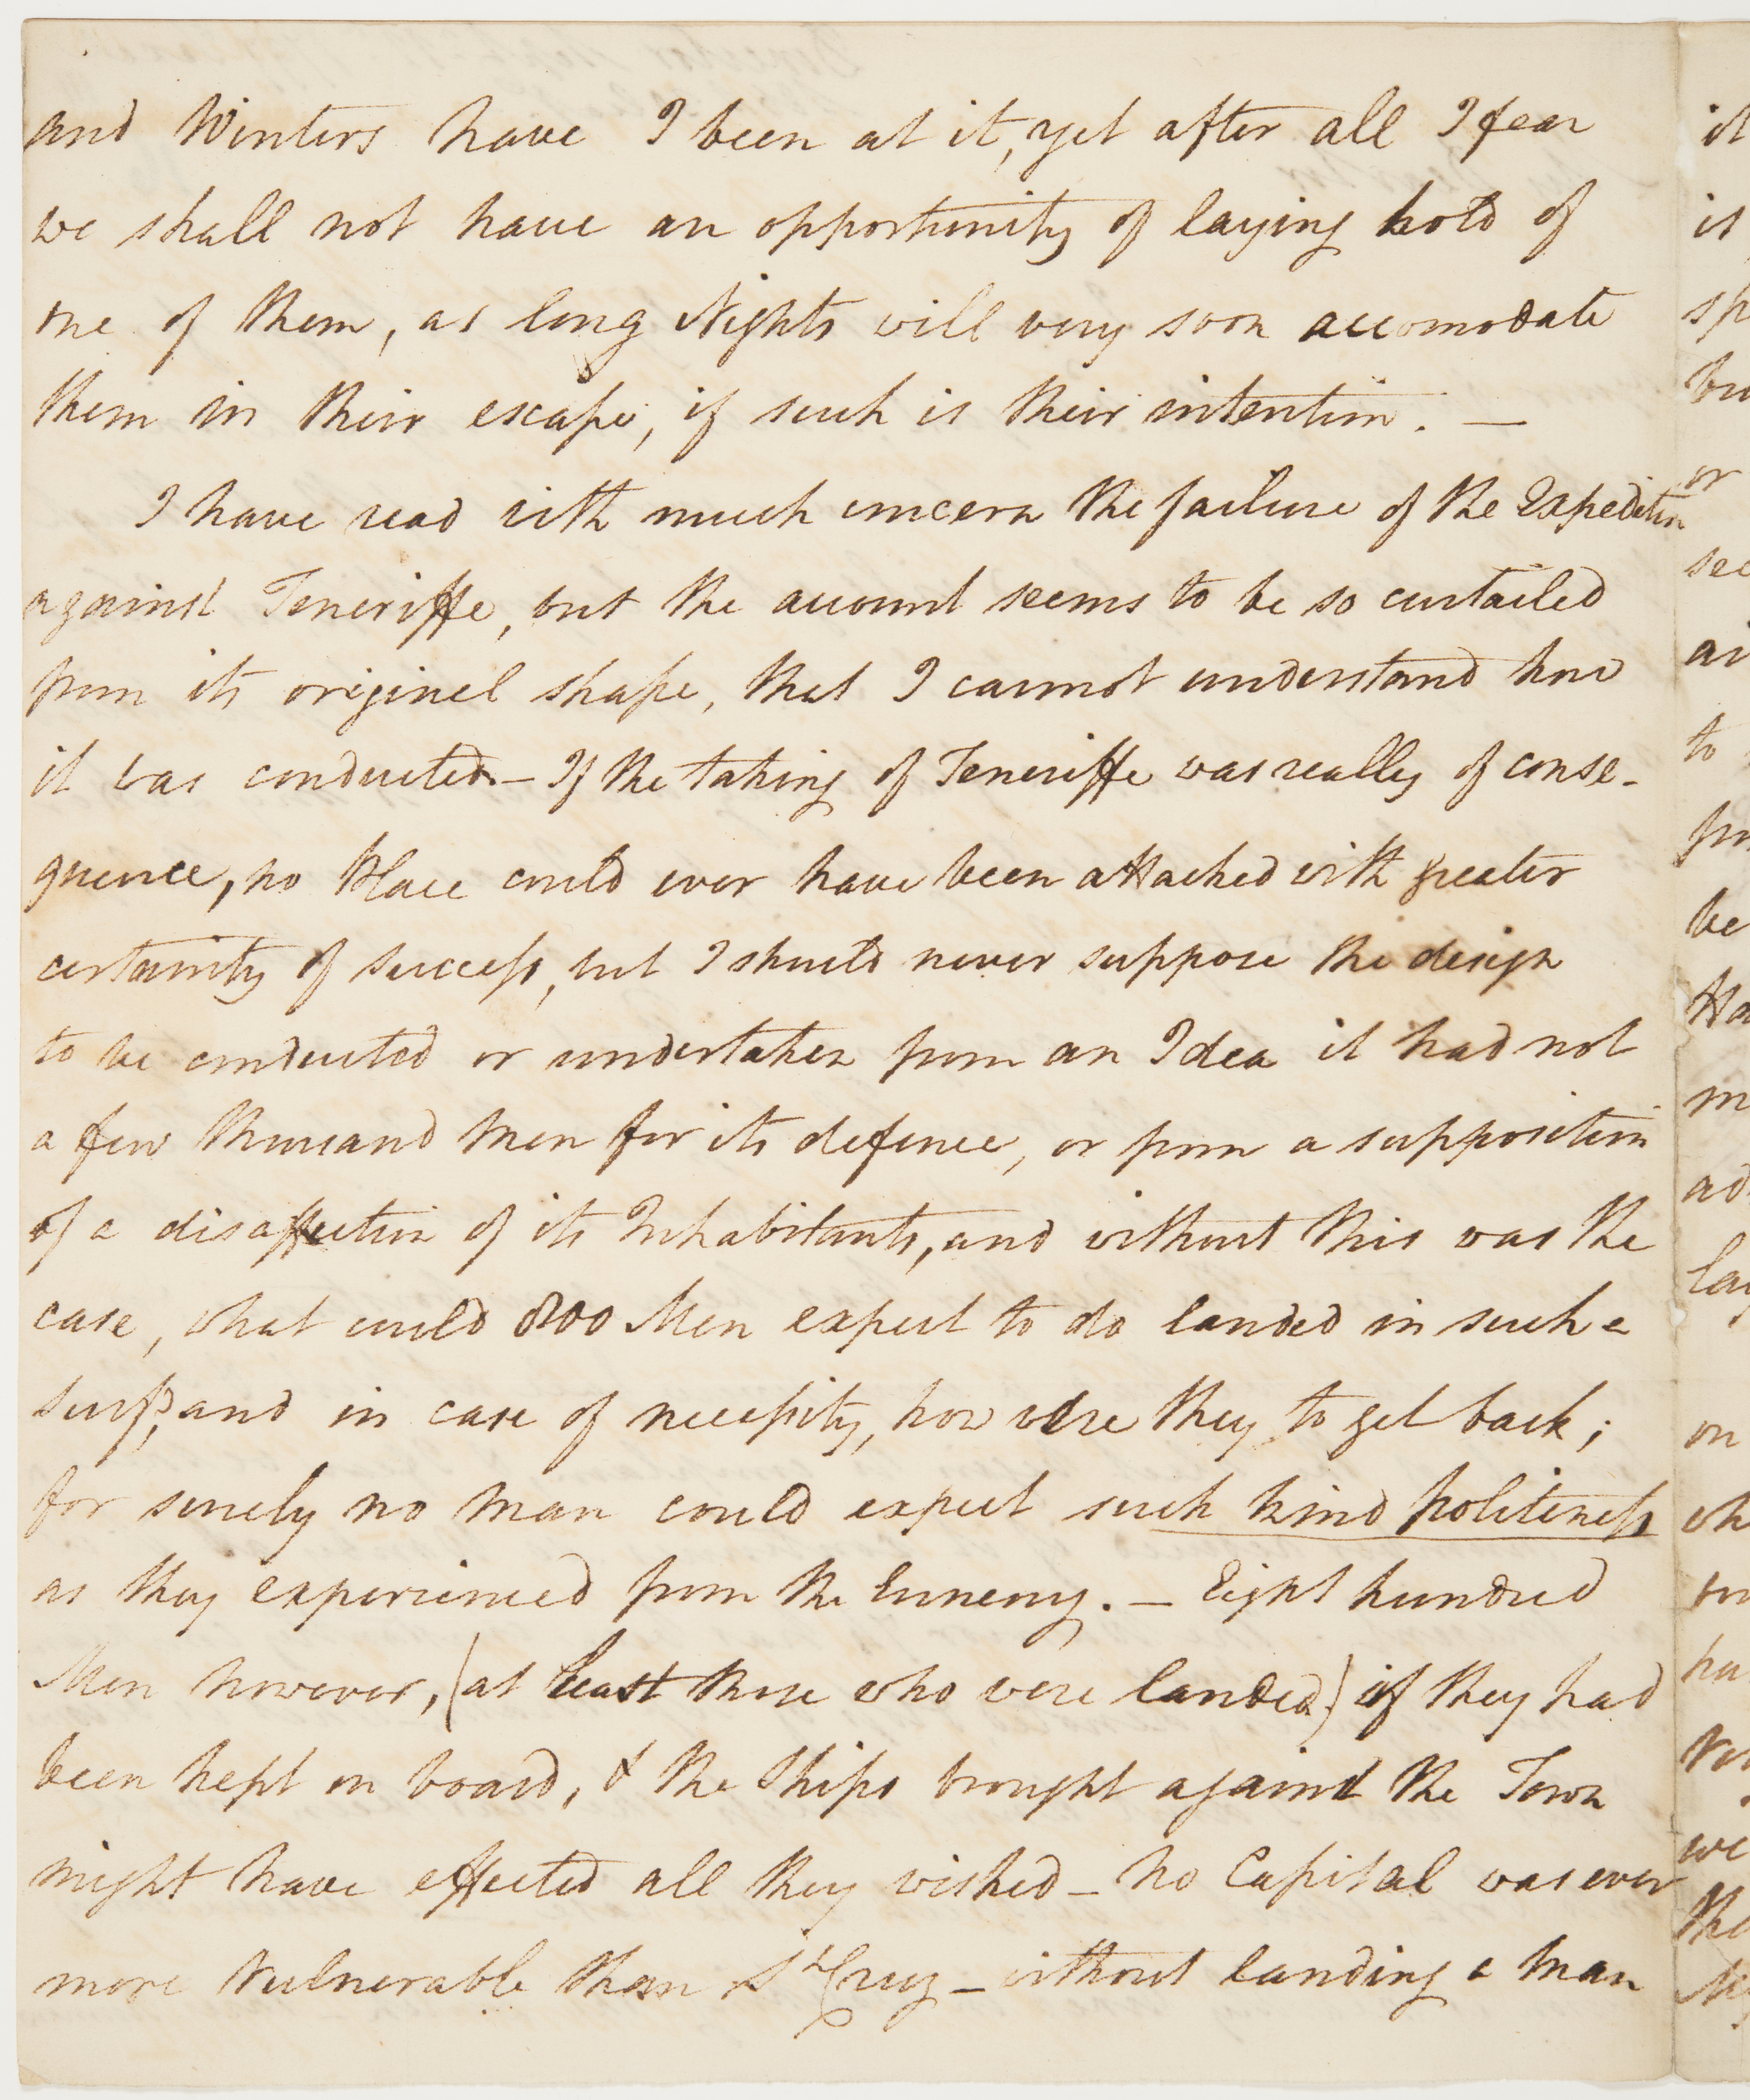 and Winters have I been at it, yet after all I fear
we shall not have an opportunity of laying hold of
one of them, as long Nights will very soon accomodate
them in their escape, if such is their intention. —
I have read with much concern the failure of the Expedition
against Teneriffe, but the account seems to be so curtailed
from its original shape, that I cannot understand how
it was conducted. — If the taking of Teneriffe was really of conse-
quence, no Place could ever have been attacked with greater
certainity of success, but I should never suppose the design
to be conducted or undertaken from an Idea it had not
a few thousand men for its defence, or from a supposition
of a disaffection of its Inhabitants, and without this was the
case, what could 800 Men expect to do landed in such a
surf, and in case of necessity, how were they to get back;
for surely no man could expect such kind politeness
as they experienced from the Ennemy. — Eight hundred
Men however, (at least those who were landed) if they had
been kept on board, & the Ships brought against the Town
might have effected all they wished — no Capital was ever
more vulnerable than St Cruz — without landing a man
it
is
sp
bu
or
see
ai
to
fro
be
Ha
m
ad
lay
on
wh
ha
we
the